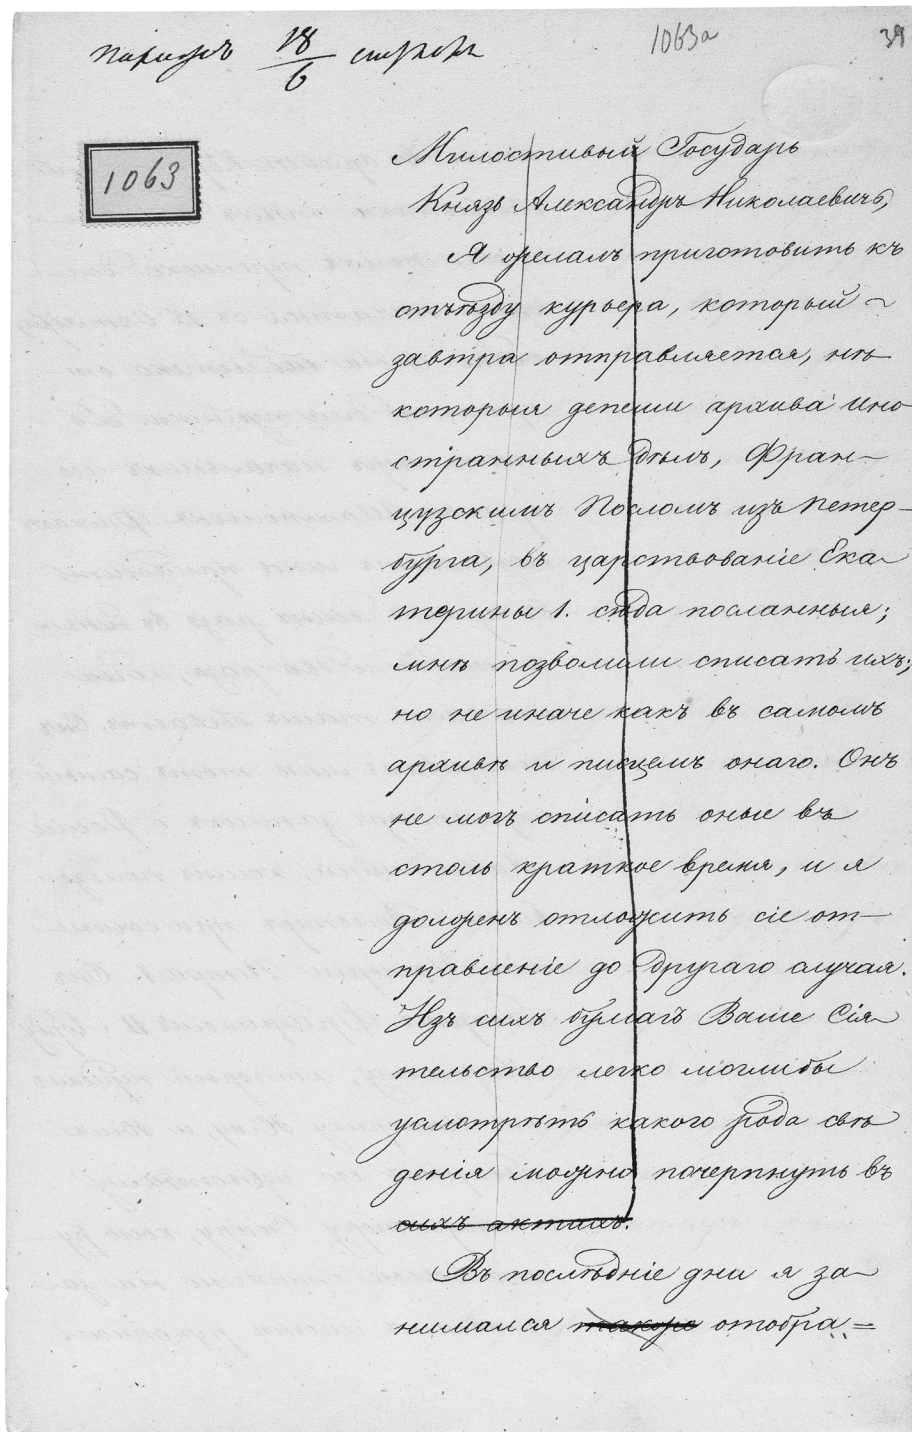 Парижъ 18/6 октября
1063а
39
1063
Милостивый Государь
Князь Александръ Николаевичь,
Я желалъ приготовить къ
отъѣзду курьера, который
завтра отправляется, нѣ-
которыя депеши архива ино-
странныхъ дѣлъ, Фран-
цузскимъ Посломъ изъ Петер-
бурга, въ царствованіе Ека-
терины 1. сюда посланныя;
мнѣ позволили списать ихъ;
но не иначе какъ въ самомъ
архивѣ и писцемъ онаго. Онъ
не могъ списать оные въ
столь краткое время, и я
долженъ отложить сіе от-
правленіе до другаго случая.
Изъ сихъ бумагъ Ваше Сія-
тельство легко моглибы
усмотрѣть какого рода свѣ
денія можно почерпнуть въ
сихъ актахъ.
Въ послѣдніе дни я за-
нимался также отобра=